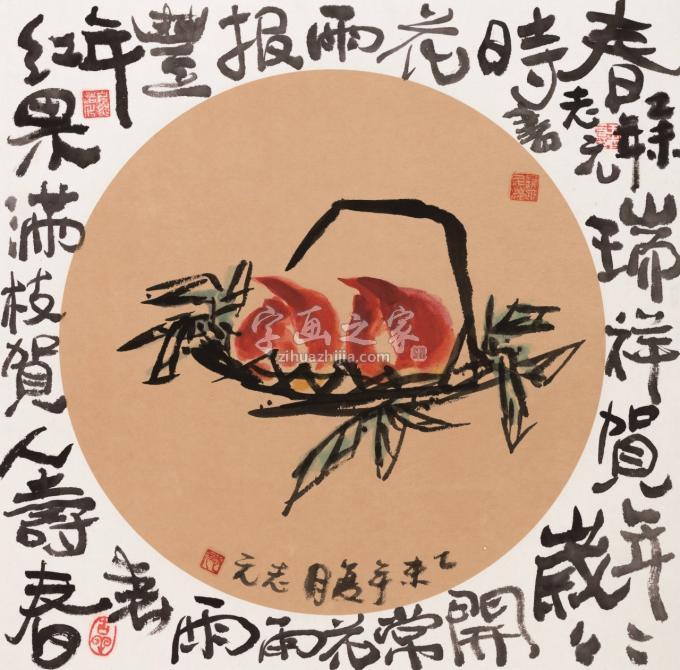 春
時花雨报豐年
志元
書
瑞祥賀年
歲
開常花雨雨
红果滿枝賀人壽春
書
乙未年月志元
字画之家
zihuazhijia.com